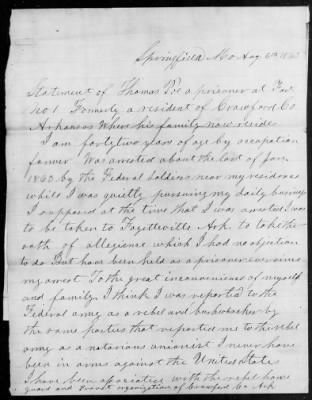 Springfield Mo Aug 6th 1863
Statement of Thomas Poe a prisoner at Fort
No 1 Formerly a resident of Crawford Co
Arkansas Where his family now reside
I am forty two years of age by occupation
farmer Was arrested about the last of Jan.
1863 by the Federal Soldiers near my residence
while I was quietly pursuing my daily business
I supposed at the time that I was arrested I was
to be taken to Fayetteville Ark. to take the
oath of allegiance which I had no objection
to do But have been held as a prisoner ever since
my arrest To the great inconvenience of myself
and family. I think I was reported to the
Federal army as a rebel and bushwhacker by
the same parties that reported me to the rebel
army as a notorious unionist I never have
been in arms against the United States
I have been associated with the rebel home
guard and Provost organization of Crawford Co Ark